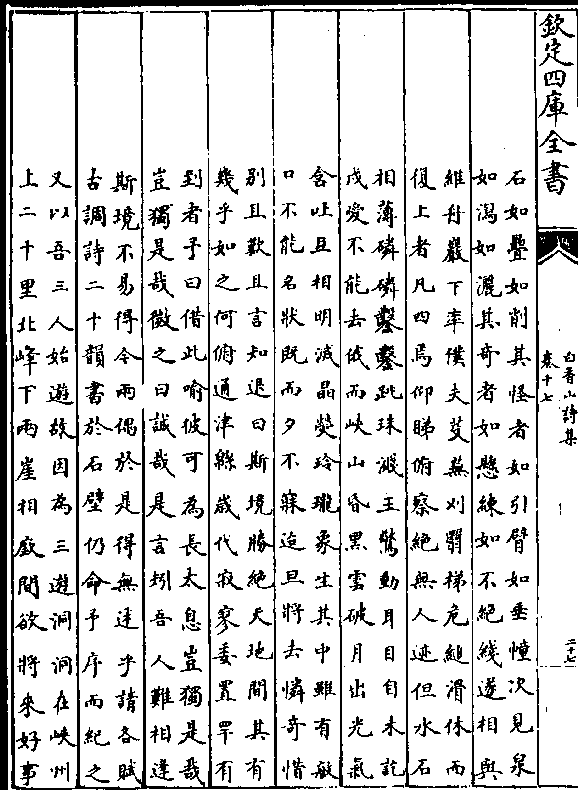 欽定四庫全書
白香山詩集
卷十七
二十七
石如疊如削其怪者如引臂如垂幢次見泉
如瀉如灑其奇者如懸練如不絕綫遂相與
維舟巖下率僕夫芟蕪刈翳梯危縋滑休而
復上者凡四焉仰睇俯察絕無人迹但水石
相薄磷磷鑿鑿跳珠濺玉驚動耳目自未訖
戌愛不能去俄而峽山昏黑雲破月出光氣
含吐互相明滅晶熒玲瓏象生其中雖有敏
口不能名狀既而夕不寐迨旦將去憐奇惜
別且歎且言知退曰斯境勝絕天地間其有
幾乎如之何俯通津緜歲代寂寥委置罕有
到者予曰借此喻彼可為長太息豈獨是哉
豈獨是哉微之曰誠哉是言矧吾人難相逢
斯境不易得今兩偶於是得無述乎請各賦
古調詩二十韻書於石壁仍命予序而紀之
又以吾三人始遊故因為三遊洞洞在峽州
上二十里北峰下兩崖相廞間欲將來好事